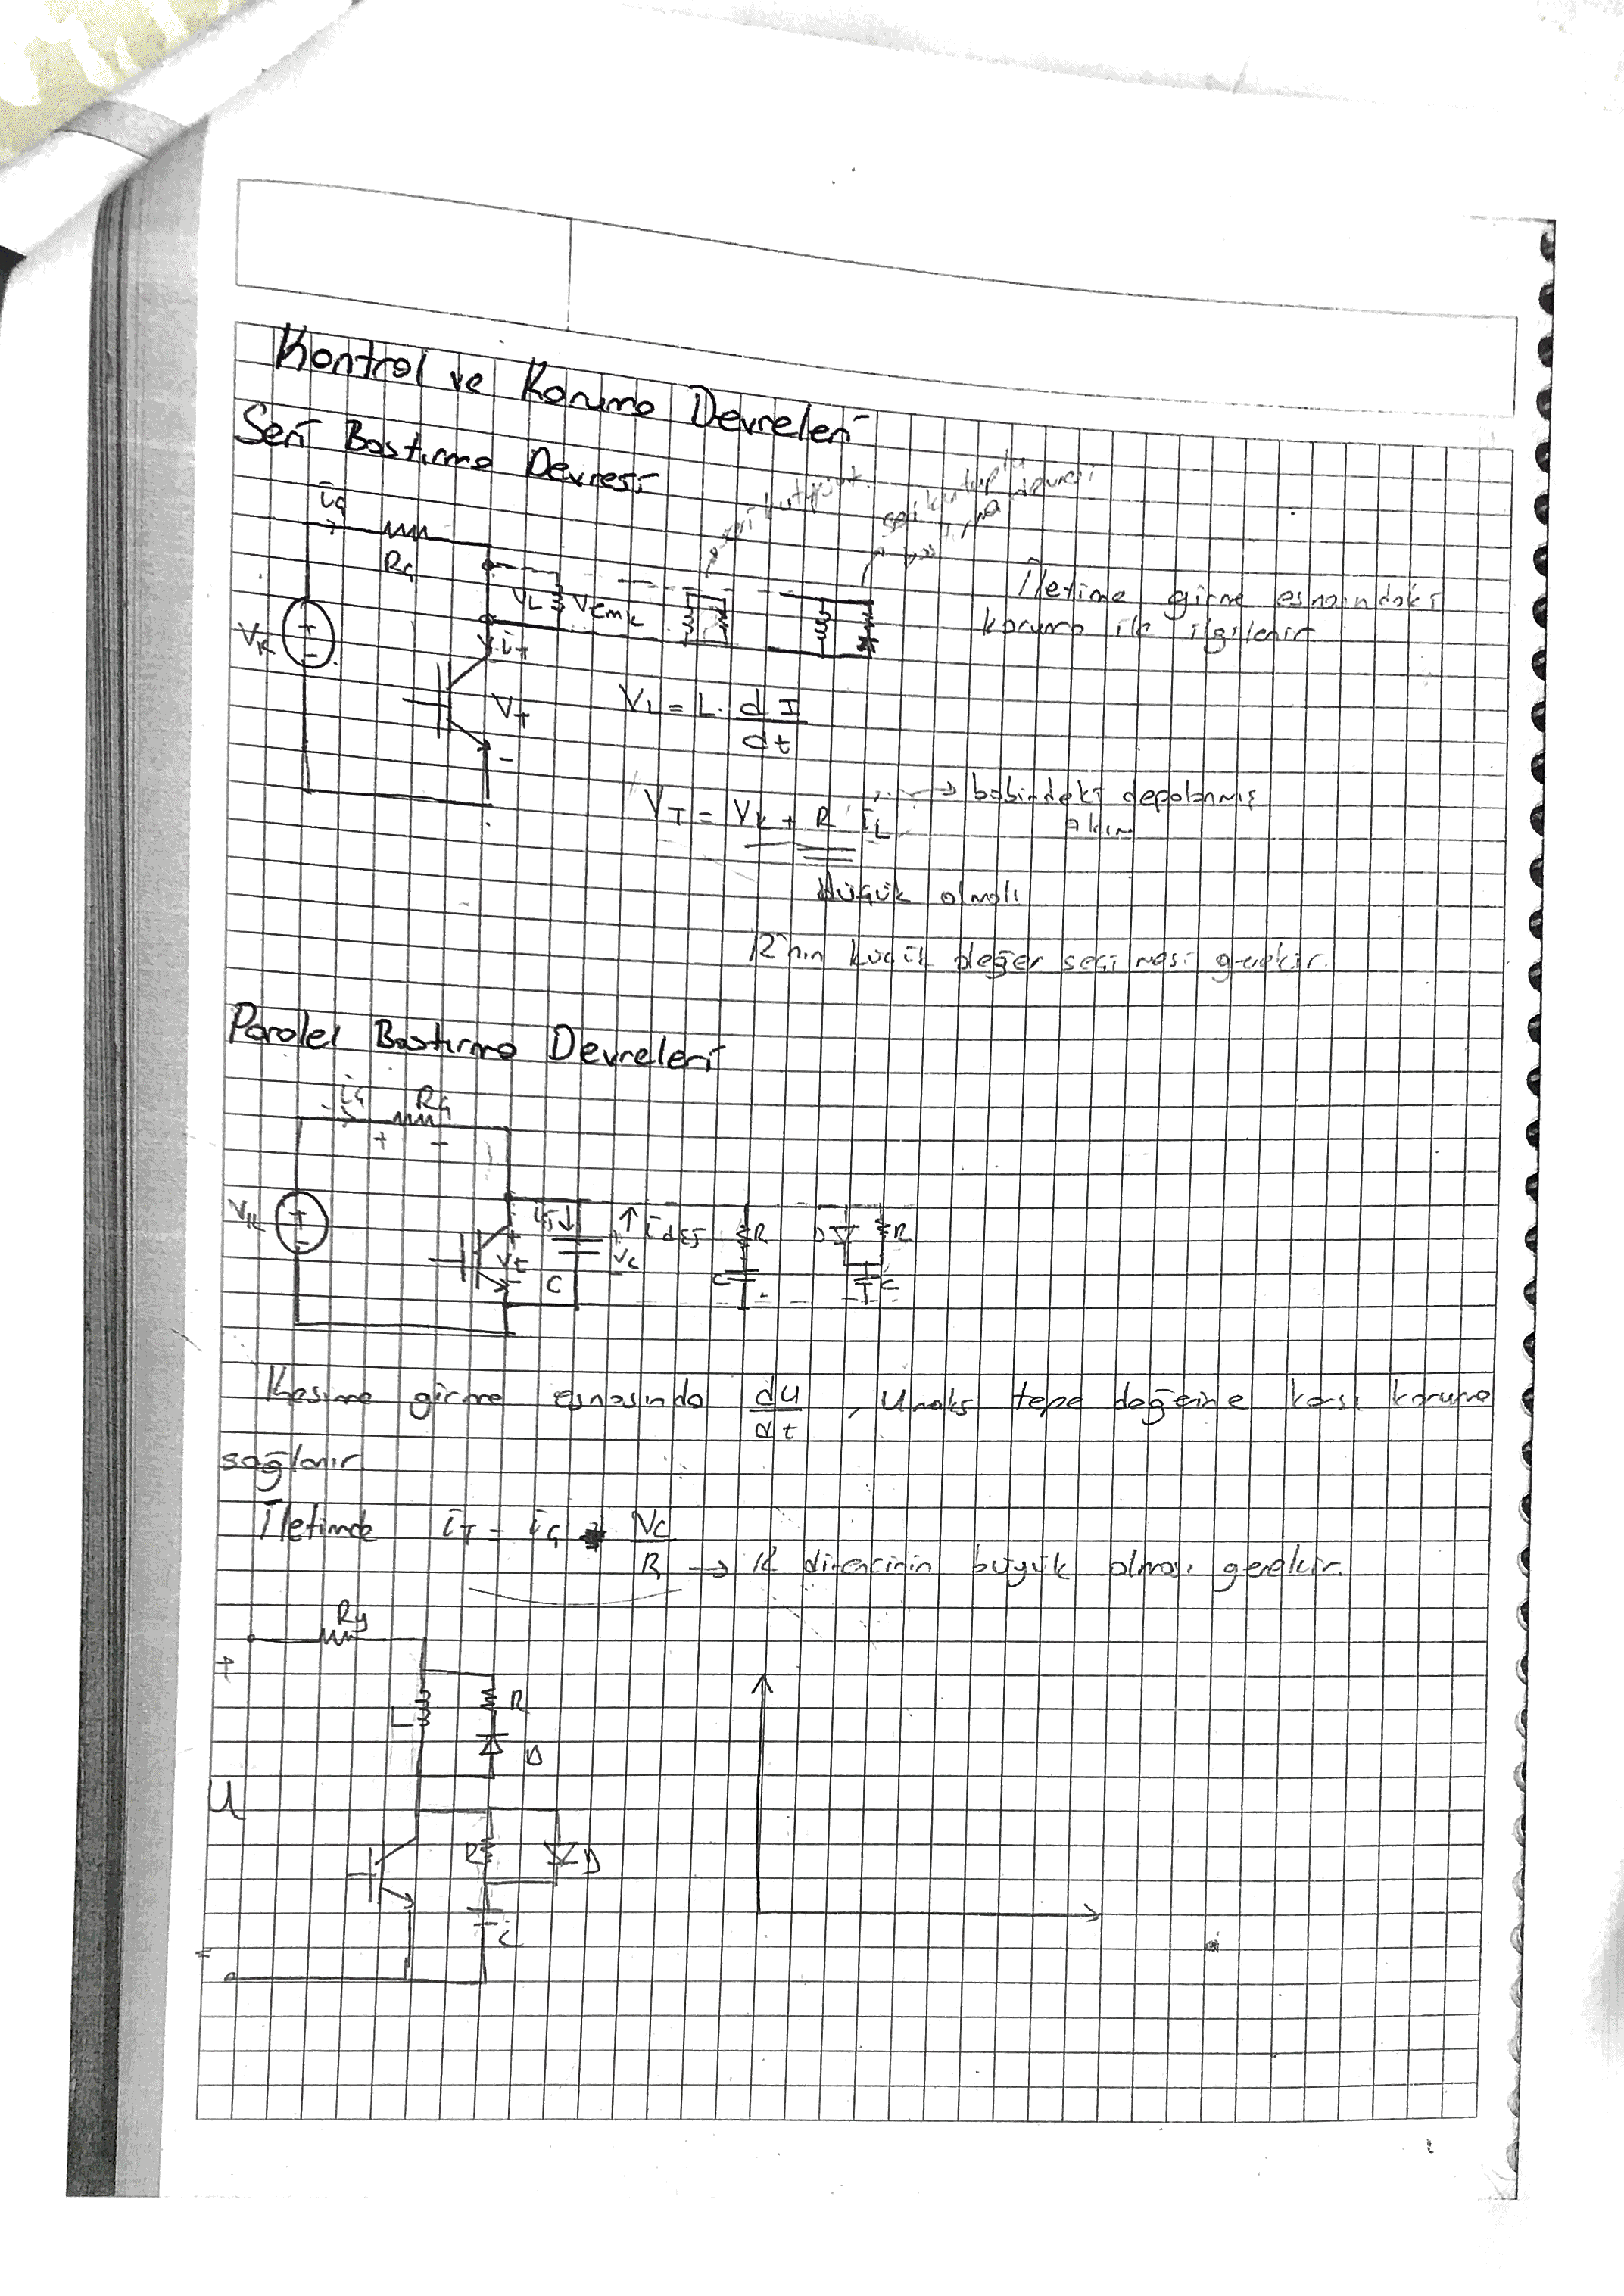 Kontrol ve Koruma Devreleri
Seri Bastırma Devresi
iG
RG
VK
VL
Vemk
iT
VT
İletime girme esnasındaki
koruma ile ilgilenir
VL = L. dI/dt
VT = VK + R iL → bobindeki depolanmış
akım
küçük olmalı
R'nin küçük değer seçilmesi gerekir.
Paralel Bastırma Devreleri
iG RG
+ -
VK
VC
C
ideş
R
C
D
R
C
Kesime girme esnasında du/dt , Umaks tepe değerine karşı koruma
sağlanır
İletimde iT = iG + VC/R → R direncinin büyük olması gerekir.
Ry
+
L
R
D
U
R
D
C